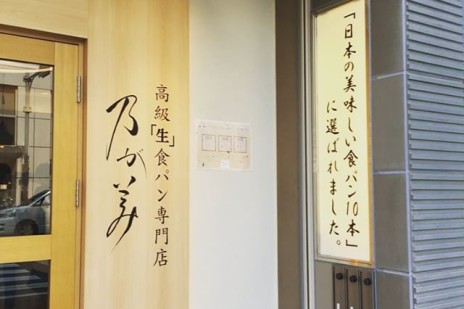 「日本の美味しい食パン10本」
に選ばれました。
高級「生」食パン専門店
乃が美